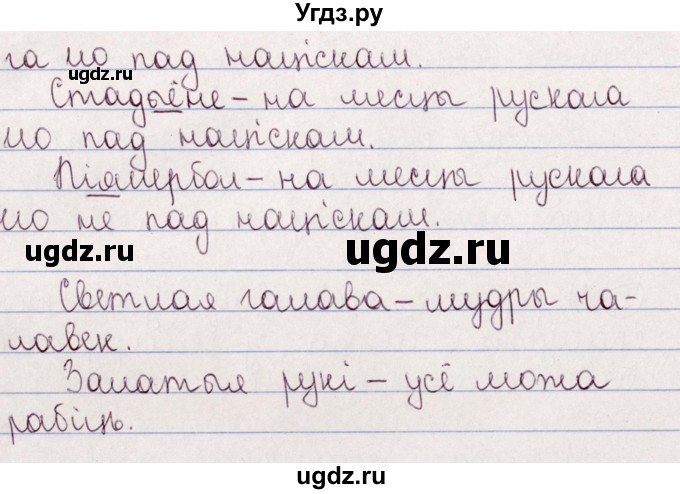 Угдз.ру
га ио пад націскам.
ugdz.ru
Стадыёне – на месцы рускага
ио пад націскам.
Піянербол – на месцы рускага
ио не пад націскам.
ugdz.ru
ugdz.ru
ugdz.ru
Светлая галава – мудры ча-
лавек.
Залатыя рукі – усё можа
рабіць.
ugdz.ru
ugdz.ru